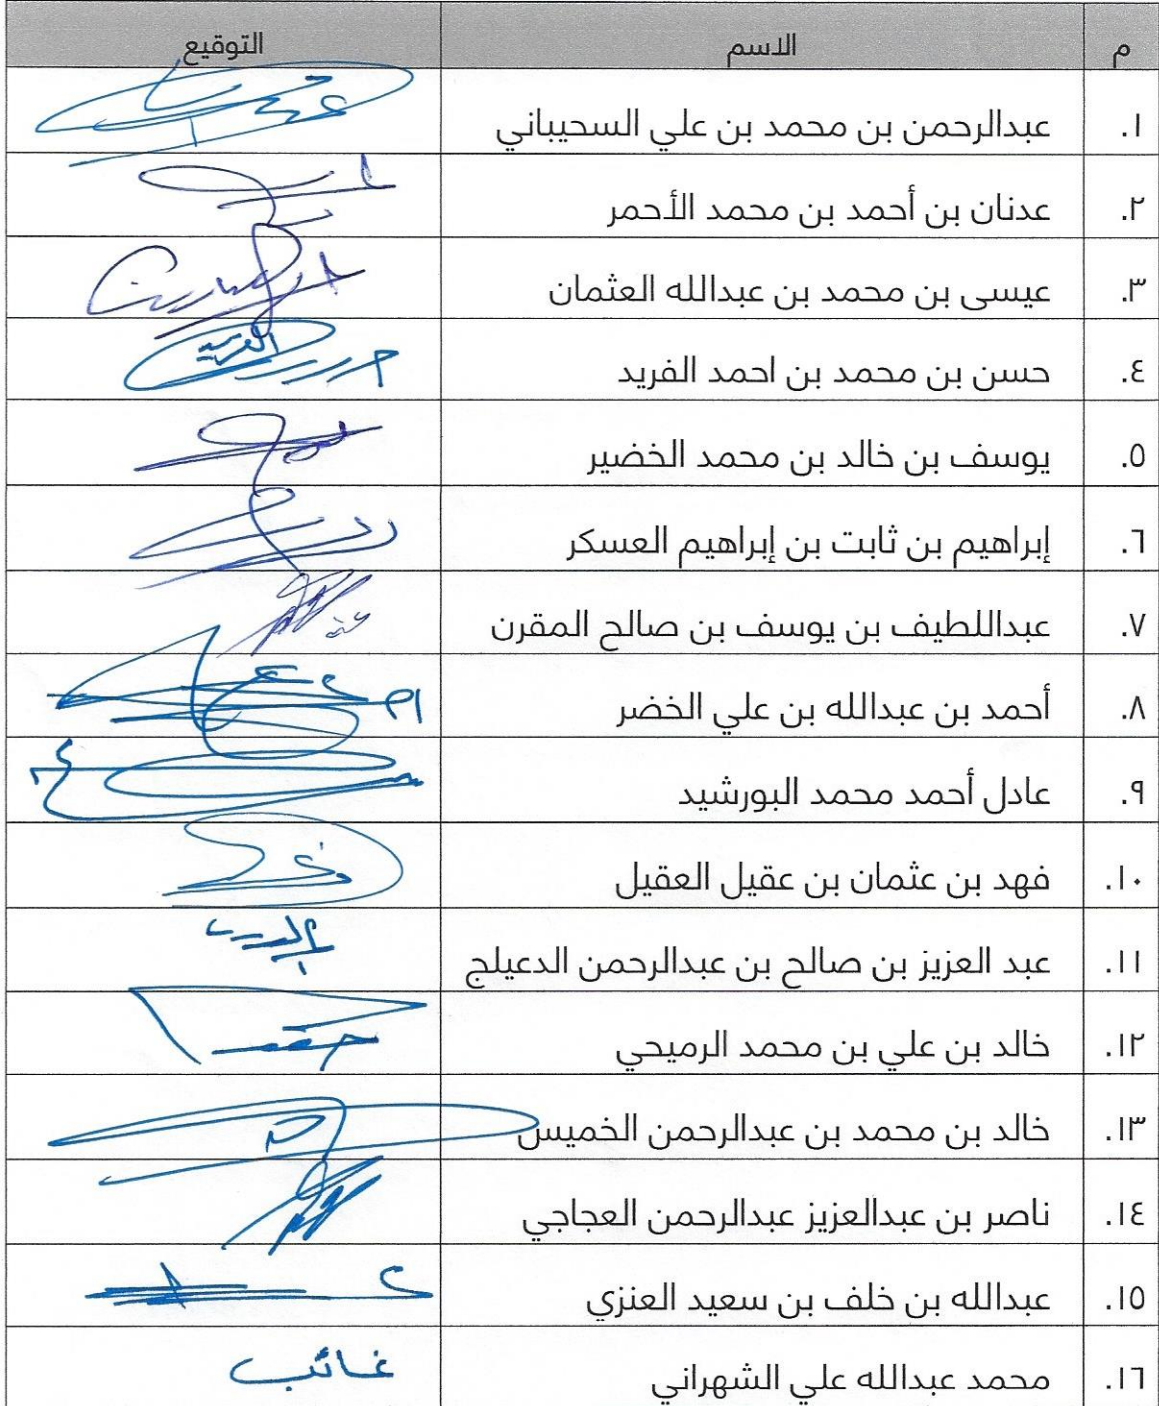 م الاسم التوقيع
١. عبدالرحمن بن محمد بن علي السحيباني
٢. عدنان بن أحمد بن محمد الأحمر
٣. عيسى بن محمد بن عبدالله العثمان
٤. حسن بن محمد بن احمد الفريد
٥. يوسف بن خالد بن محمد الخضير
٦. إبراهيم بن ثابت بن إبراهيم العسكر
٧. عبداللطيف بن يوسف بن صالح المقرن
٨. أحمد بن عبدالله بن علي الخضر
٩. عادل أحمد محمد البورشيد
١٠. فهد بن عثمان بن عقيل العقيل
١١. عبد العزيز بن صالح بن عبدالرحمن الدعيلج
١٢. خالد بن علي بن محمد الرميحي
١٣. خالد بن محمد بن عبدالرحمن الخميس
١٤. ناصر بن عبدالعزيز عبدالرحمن العجاجي
١٥. عبدالله بن خلف بن سعيد العنزي
١٦. محمد عبدالله علي الشهراني غائب